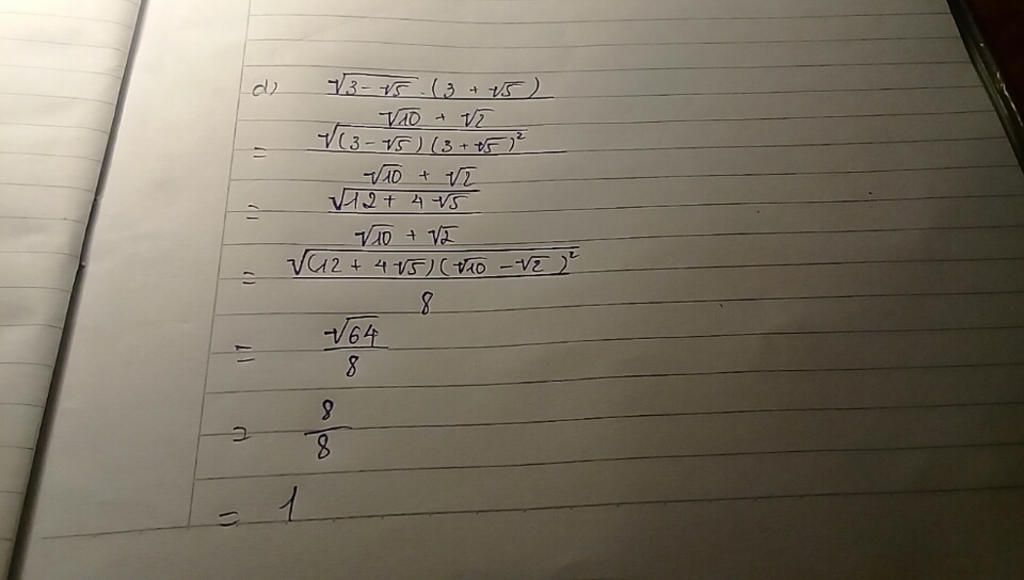 d) √(3-√5) . (3 + √5)
√10 + √2
= √((3-√5)(3+√5)²)
√10 + √2
= √(12 + 4√5)
√10 + √2
= √((12 + 4√5)(√10 - √2)²)
8
= √64
8
= 8
8
= 1